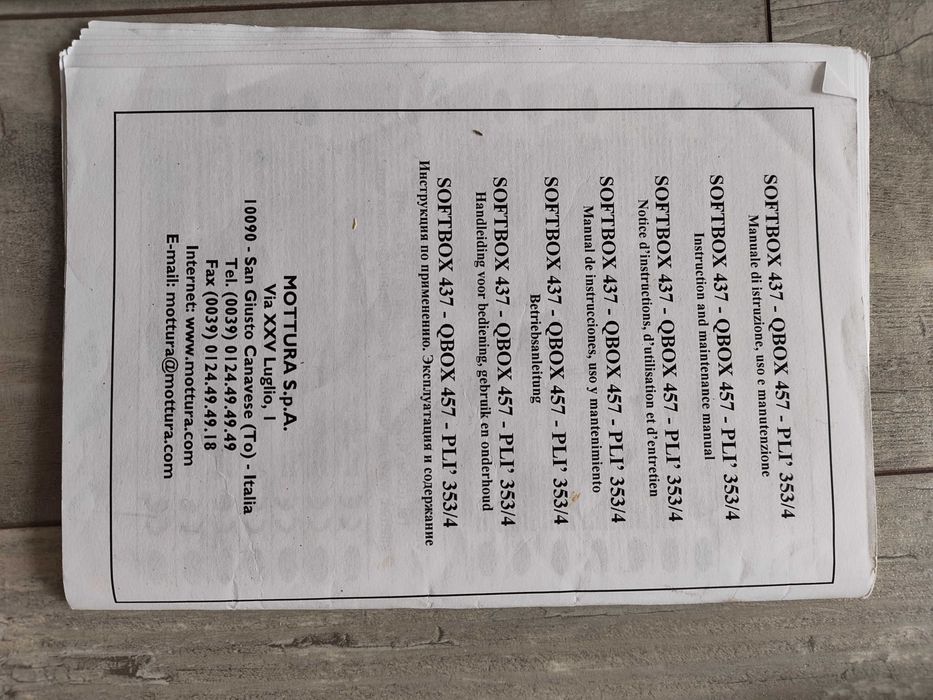 SOFTBOX 437 - QBOX 457 - PLI’ 353/4
Manuale di istruzione, uso e manutenzione
SOFTBOX 437 - QBOX 457 - PLI’ 353/4
Instruction and maintenance manual
SOFTBOX 437 - QBOX 457 - PLI’ 353/4
Notice d’instructions, d’utilisation et d’entretien
SOFTBOX 437 - QBOX 457 - PLI’ 353/4
Manual de instrucciones, uso y mantenimiento
SOFTBOX 437 - QBOX 457 - PLI’ 353/4
Betriebsanleitung
SOFTBOX 437 - QBOX 457 - PLI’ 353/4
Handleiding voor bediening, gebruik en onderhoud
SOFTBOX 437 - QBOX 457 - PLI’ 353/4
Инструкция по применению. Эксплуатация и содержание
MOTTURA S.p.A.
Via XXV Luglio, 1
10090 - San Giusto Canavese (To) - Italia
Tel. (0039) 0124.49.49.49
Fax (0039) 0124.49.49.18
Internet: www.mottura.com
E-mail: mottura@mottura.com